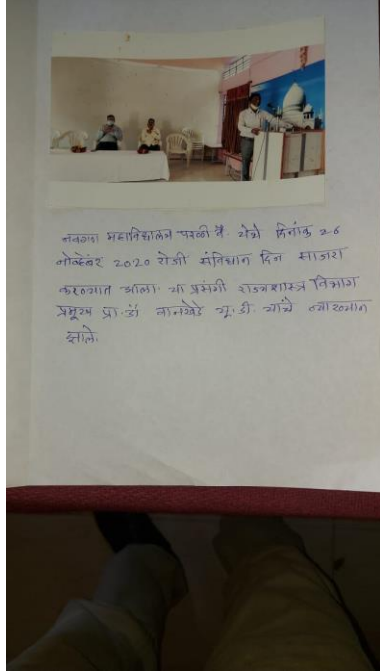 महाविद्यालय परळी वै. येथे दिनांक 26
नोव्हेंबर 2020 रोजी संविधान दिन साजरा
करण्यात आला. या प्रसंगी राज्यशास्त्र विभाग
प्रमुख प्रा. डॉ. वानखेडे यू. डी. यांचे व्याख्यान
झाले.